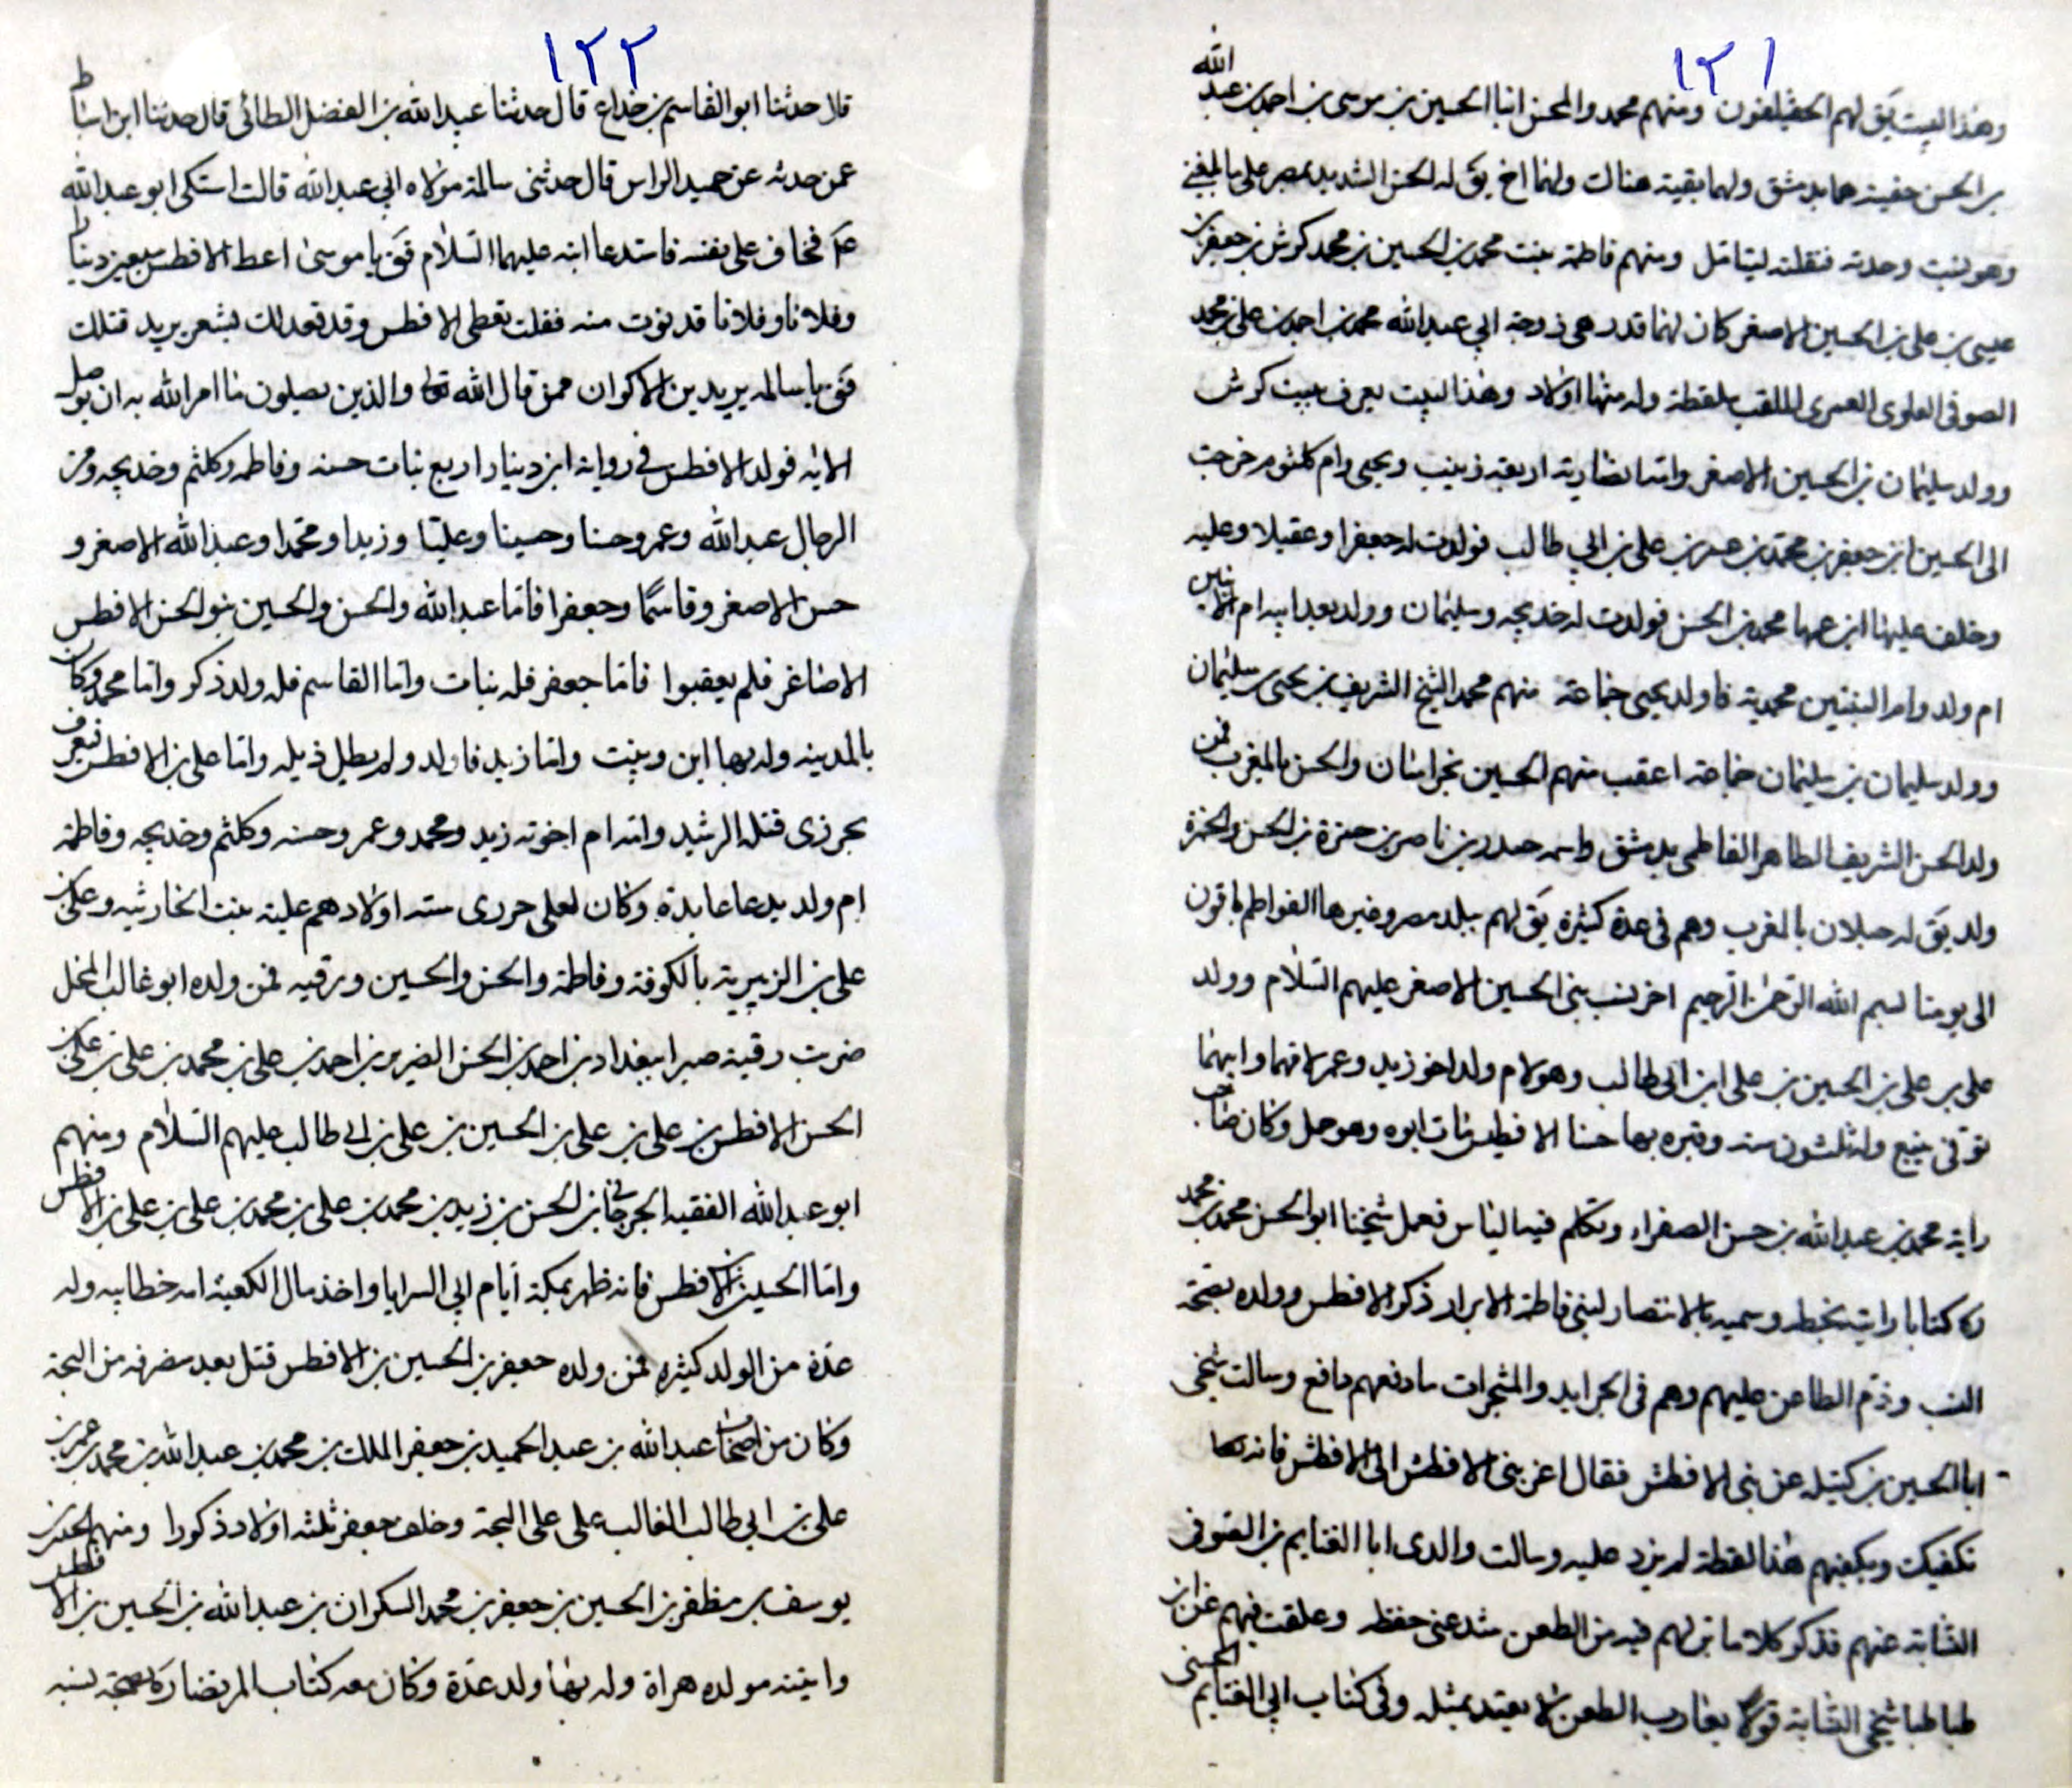 ١٢١
وهذا البيت يق لهم الحقيلقون ومنهم محمد والمحسن ابنا الحسين بن موسى بن احمد بن عبد الله
بن الحسن حقينه هما بدمشق ولهما بقية هناك ولهما اخ يق له الحسن الشديد بمصر على ما بلغني
وهو لبنت وحدته فنقلته ليتامل ومنهم فاطمة بنت محمد بن الحسين بن محمد كرش بن جعفر بن
عيسى بن على بن الحسين الاصغر كان لها قدر هى زوجة ابي عبد الله محمد بن احمد بن على بن محمد
الصوفى العلوى العمرى الملقب ملقطة وله منها اولاد وهذا لبيت يعرف ببيت كرش
وولد سليمان بن الحسين الاصغر وامه انصارية اربعة زينب ويحيى وام كلثوم خرجت
الى الحسين بن جعفر بن محمد بن عمر بن على بن ابي طالب فولدت له جعفرا وعقيلا وعليه
وخلف عليها ابن عمها محمد بن الحسن فولدت له خديجه وسليمان وولد بعد ابيه ام الابنين
ام ولد وام البنتين محمدية فاولد يحيى جماعة منهم محمد الشيخ الشريف بن يحيى بن سليمان
وولد سليمان بن سليمان جماعة اعقب منهم الحسين بخراسان والحسن بالمغرب فمن
ولد الحسن الشريف الطاهر الفاطمى بدمشق واسمه حيدر بن ناصر بن حمزة بن الحسن ولحمزة
ولد يق له حبلان بالمغرب وهم فى عدة كثيرة يق لهم ببلد مصر وغيرها الفواطم باقون
الى يومنا بسم الله الرحمن الرحيم اخر نسب بنى الحسين الاصغر عليهم السلام وولد
على بن على بن الحسين بن على ابن ابي طالب وهو لام ولد اخو زيد وعمر لامهما وابيهما
توفى بينبع وله ثلثون سنه وقبره بها حسنا الافطس مات ابوه وهو حمل وكان صاحب
راية محمد بن عبد الله بن حسن الصفراء وتكلم فيه الناس فعمل شيخنا ابو الحسن محمد بن محمد
ره كتابا رايته بخطه وسميه بالانتصار لبنى فاطمة الابرار ذكر الافطس وولده بصحة
النسب وذم الطاعن عليهم وهم فى الجرايد والمشجرات ما دفعهم دافع وسالت شيخى
ابا الحسين بن كتيله عن بنى الافطس فقال اعز بنى الافطس الى الافطس فانه
تكفيك ويكفيهم هذا لفظه لم يزد عليه وسالت والدى ابا الغنايم بن الصوفى
النسابه عنهم فذكر كلاما برى لهم فيه من الطعن شد عنى حفظه وعلقت فيهم عن ابن
طباطبا شيخى النسابة قولا يقارب الطعن لا يعتد بمثله وفى كتاب ابى الغنايم الحسنى
١٢٢
قلا حدثنا ابو القاسم بن خداع قال حدثنا عبيد الله بن الفضل الطائى قال حدثنا ابن اسباط
عمن حدثه عن حميد الراس قال حدثتنى سالمة مولاه ابي عبد الله قالت اشتكى ابو عبد الله
عم فخاف على نفسه فاستدعا ابنه عليهما السلام فق يا موسى اعط الافطس سبعين دينارا
وفلانا وفلانا قد نوت منه فقلت تعطى الافطس وقد قعد لك بشعر يريد قتلك
فق يا سالمه يريدين الاكوان ممن قال الله تعا والذين يصلون ما امر الله به ان يوصل
الايه فولد الافطس فى رواية ابن دينار اربع بنات حسنه وفاطمه وكلثم وخديجه ومن
الرجال عبد الله وعمر وحسنا وحسينا وعليا وزيدا ومحمدا وعبد الله الاصغر و
حسن الاصغر وقاسما وجعفرا فاما عبد الله والحسن والحسين بنو الحسن الافطس
الاصاغر فلم يعقبوا فاما جعفر فله بنات واما القاسم فله ولد ذكر واما محمد وكان
بالمدينه وله بها ابن وبنت واما زيد فاولد ولم يطل ذيله واما على بن الافطس فيعرف
بحر زى قتله الرشيد وامه ام اخوته زيد ومحمد وعمر وحسنه وكلثم وخديجه وفاطمة
ام ولد يدعا عابدة وكان لعلى حررى سته اولاد هم عليه بنت الحارثيه وعلى بن
على بن الزبيرية بالكوفة وفاطمة والحسن والحسين ورقيه فمن ولده ابو غالب المخل
ضربت رقبته صبرا ببغداد بن احمد بن الحسن الضرير بن احمد بن على بن محمد بن على بن على بن
الحسن الافطس بن على بن على بن الحسين بن على بن ابى طالب عليهم السلام ومنهم
ابو عبد الله الفقيه الجرجانى بن الحسن بن زيد بن محمد بن على بن محمد بن على بن على بن الافطس
واما الحسين بن الافطس فانه ظهر بمكة ايام ابي السرايا واخذ مال الكعبة امه خطابيه وله
عدة من الولد كثيره فمن ولده جعفر بن الحسين بن الافطس قتل بعد منصرفه من البجة
وكان من اصحاب عبد الله بن عبد الحميد بن جعفر الملك بن محمد بن عبد الله بن محمد بن عمر بن
على بن ابى طالب الغالب على على البجة وخلف جعفر ثلثه اولاد ذكورا ومنهم الحسن بن
يوسف بن مظفر بن الحسين بن جعفر بن محمد السكران بن عبد الله بن الحسين بن الافطس
وابنته مولده هراة وله بها ولد عدة وكان معه كتاب المرتضا ره بصحة نسبه